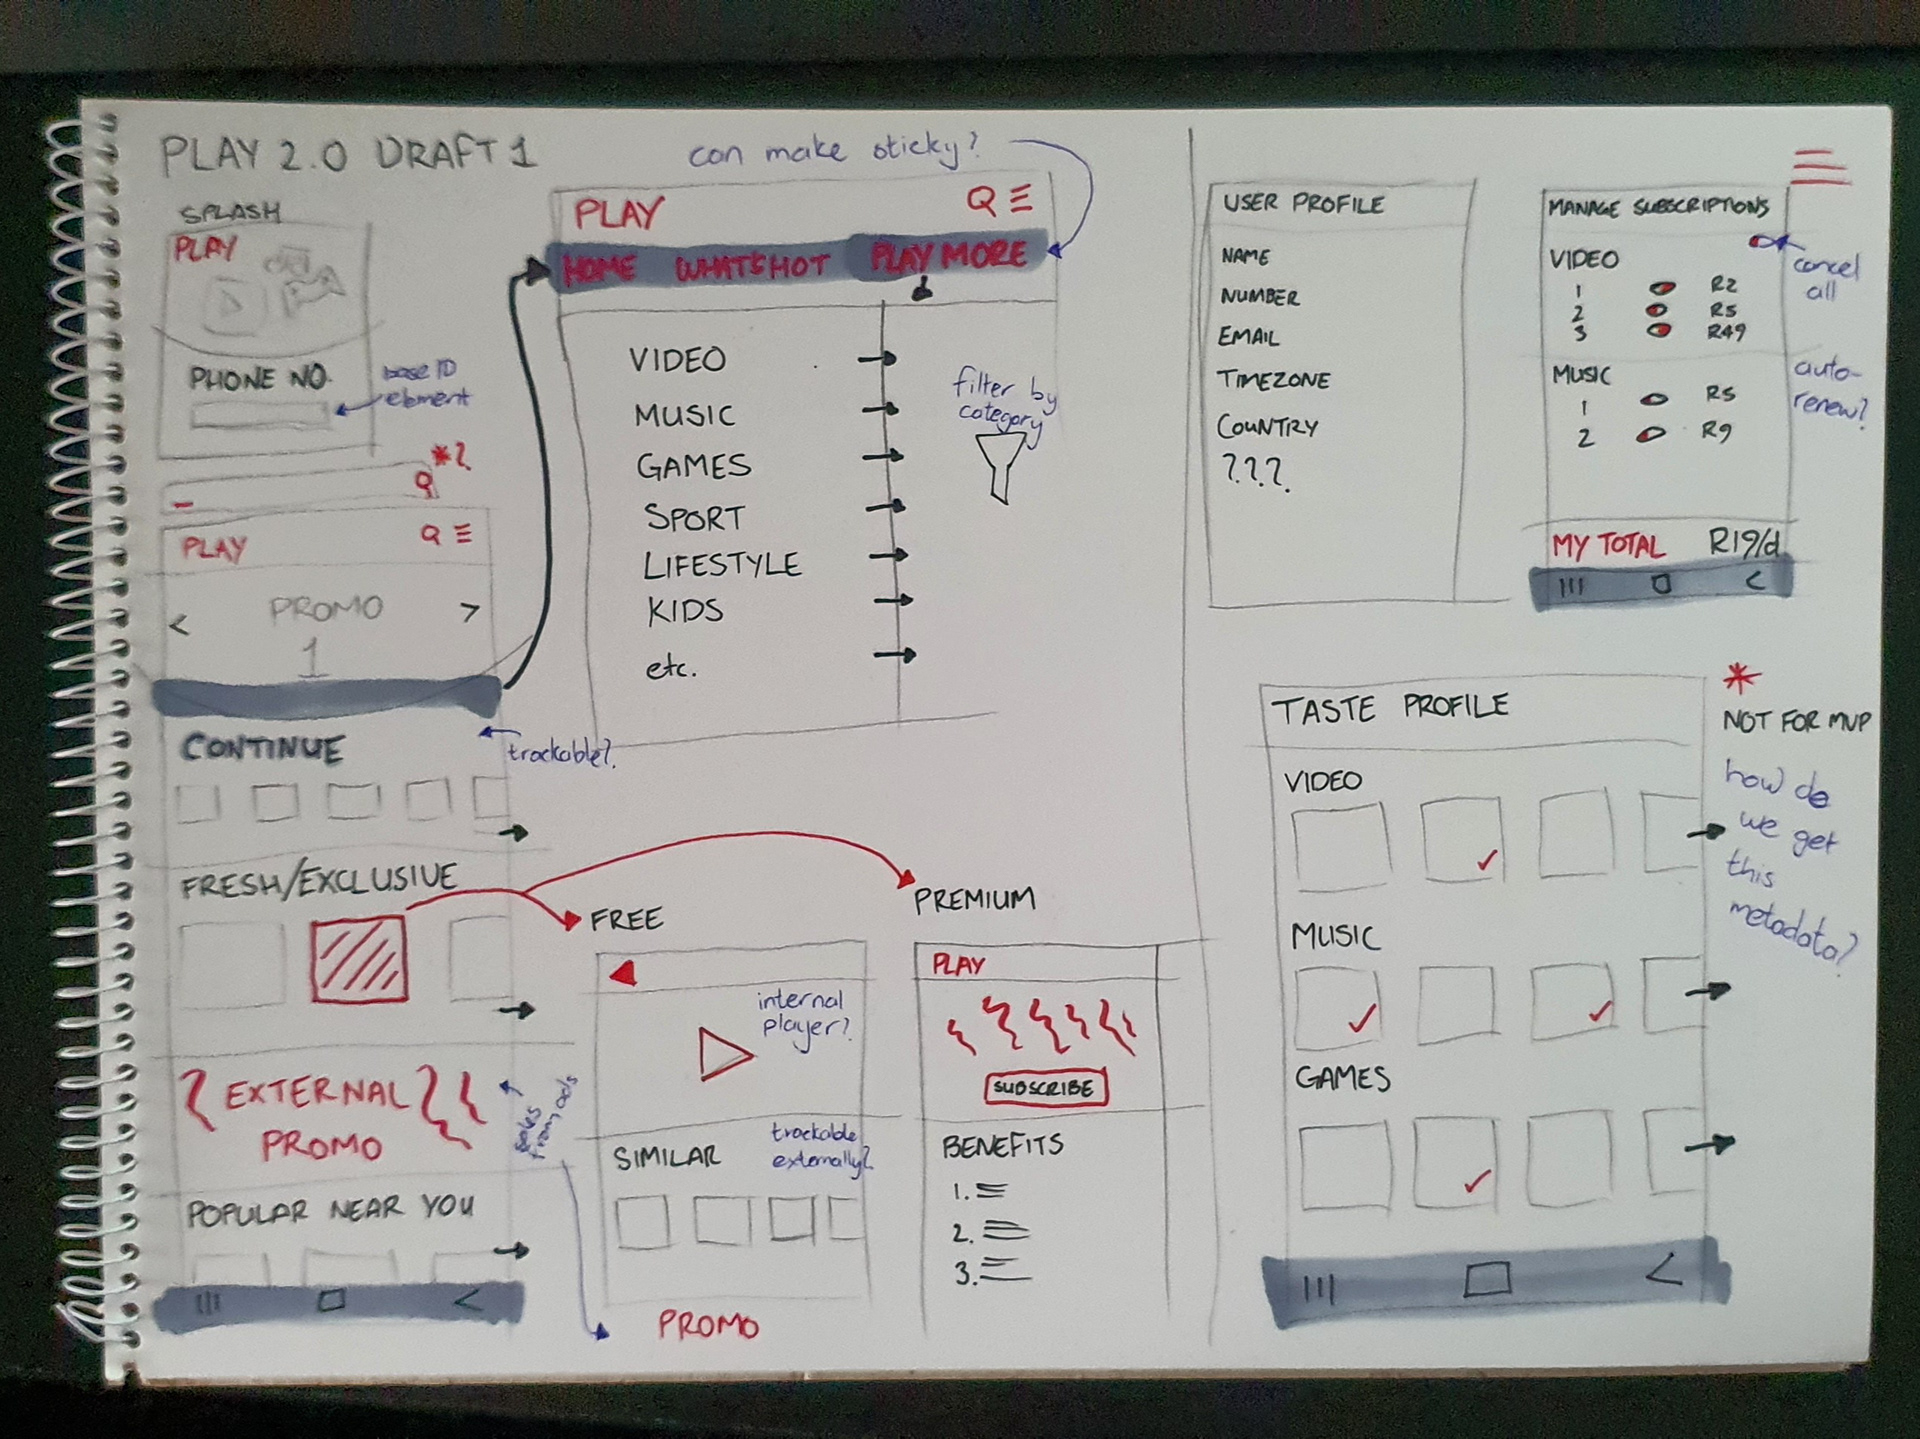 PLAY 2.0 DRAFT 1
SPLASH
PLAY
PHONE NO.
base ID
element
*?
PLAY
< PROMO >
1
CONTINUE
trackable?
FRESH/EXCLUSIVE
EXTERNAL
PROMO
sales
from ads
POPULAR NEAR YOU
can make sticky?
PLAY
HOME WHAT'S HOT PLAY MORE
VIDEO
MUSIC
GAMES
SPORT
LIFESTYLE
KIDS
etc.
filter by
category
FREE
internal
player?
SIMILAR
trackable
externally?
PROMO
PREMIUM
PLAY
SUBSCRIBE
BENEFITS
1.
2.
3.
USER PROFILE
NAME
NUMBER
EMAIL
TIMEZONE
COUNTRY
???.
MANAGE SUBSCRIPTIONS
cancel
all
VIDEO
1 R2
2 R5
3 R49
MUSIC
1 R5
2 R9
auto-
renew?
MY TOTAL R19/d
TASTE PROFILE
VIDEO
MUSIC
GAMES
*
NOT FOR MVP
how do
we get
this
metadata?